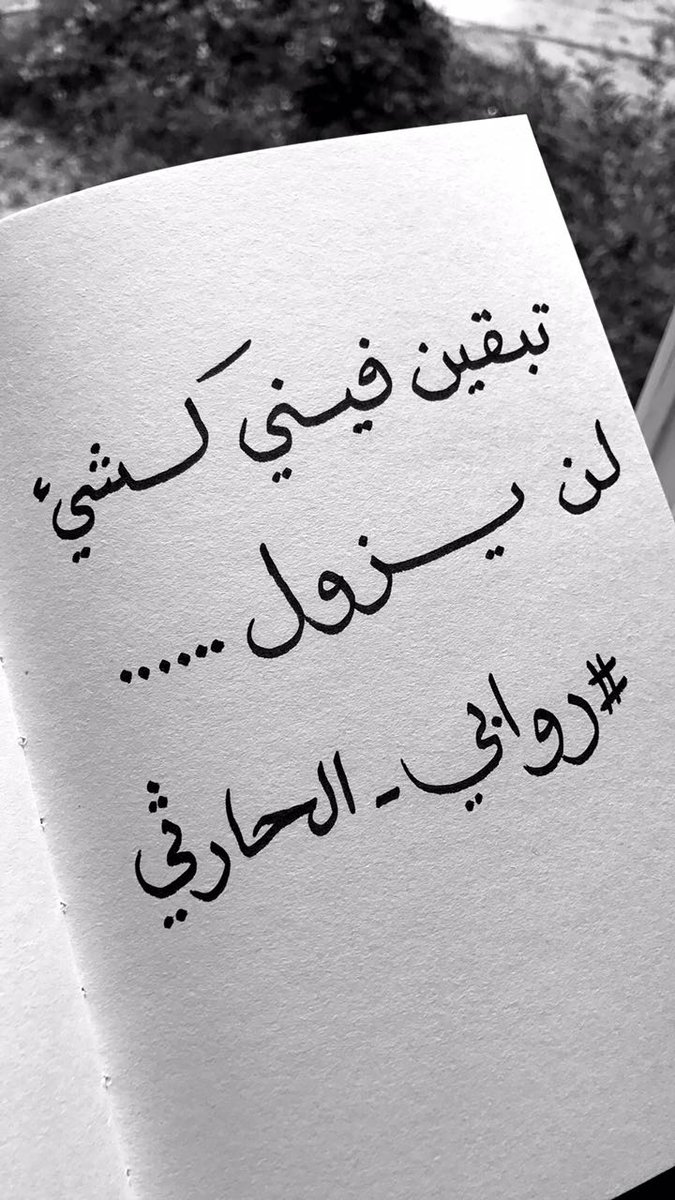 تبقين فيني كشيئ
لن يزول ......
#روابي_الحارثي